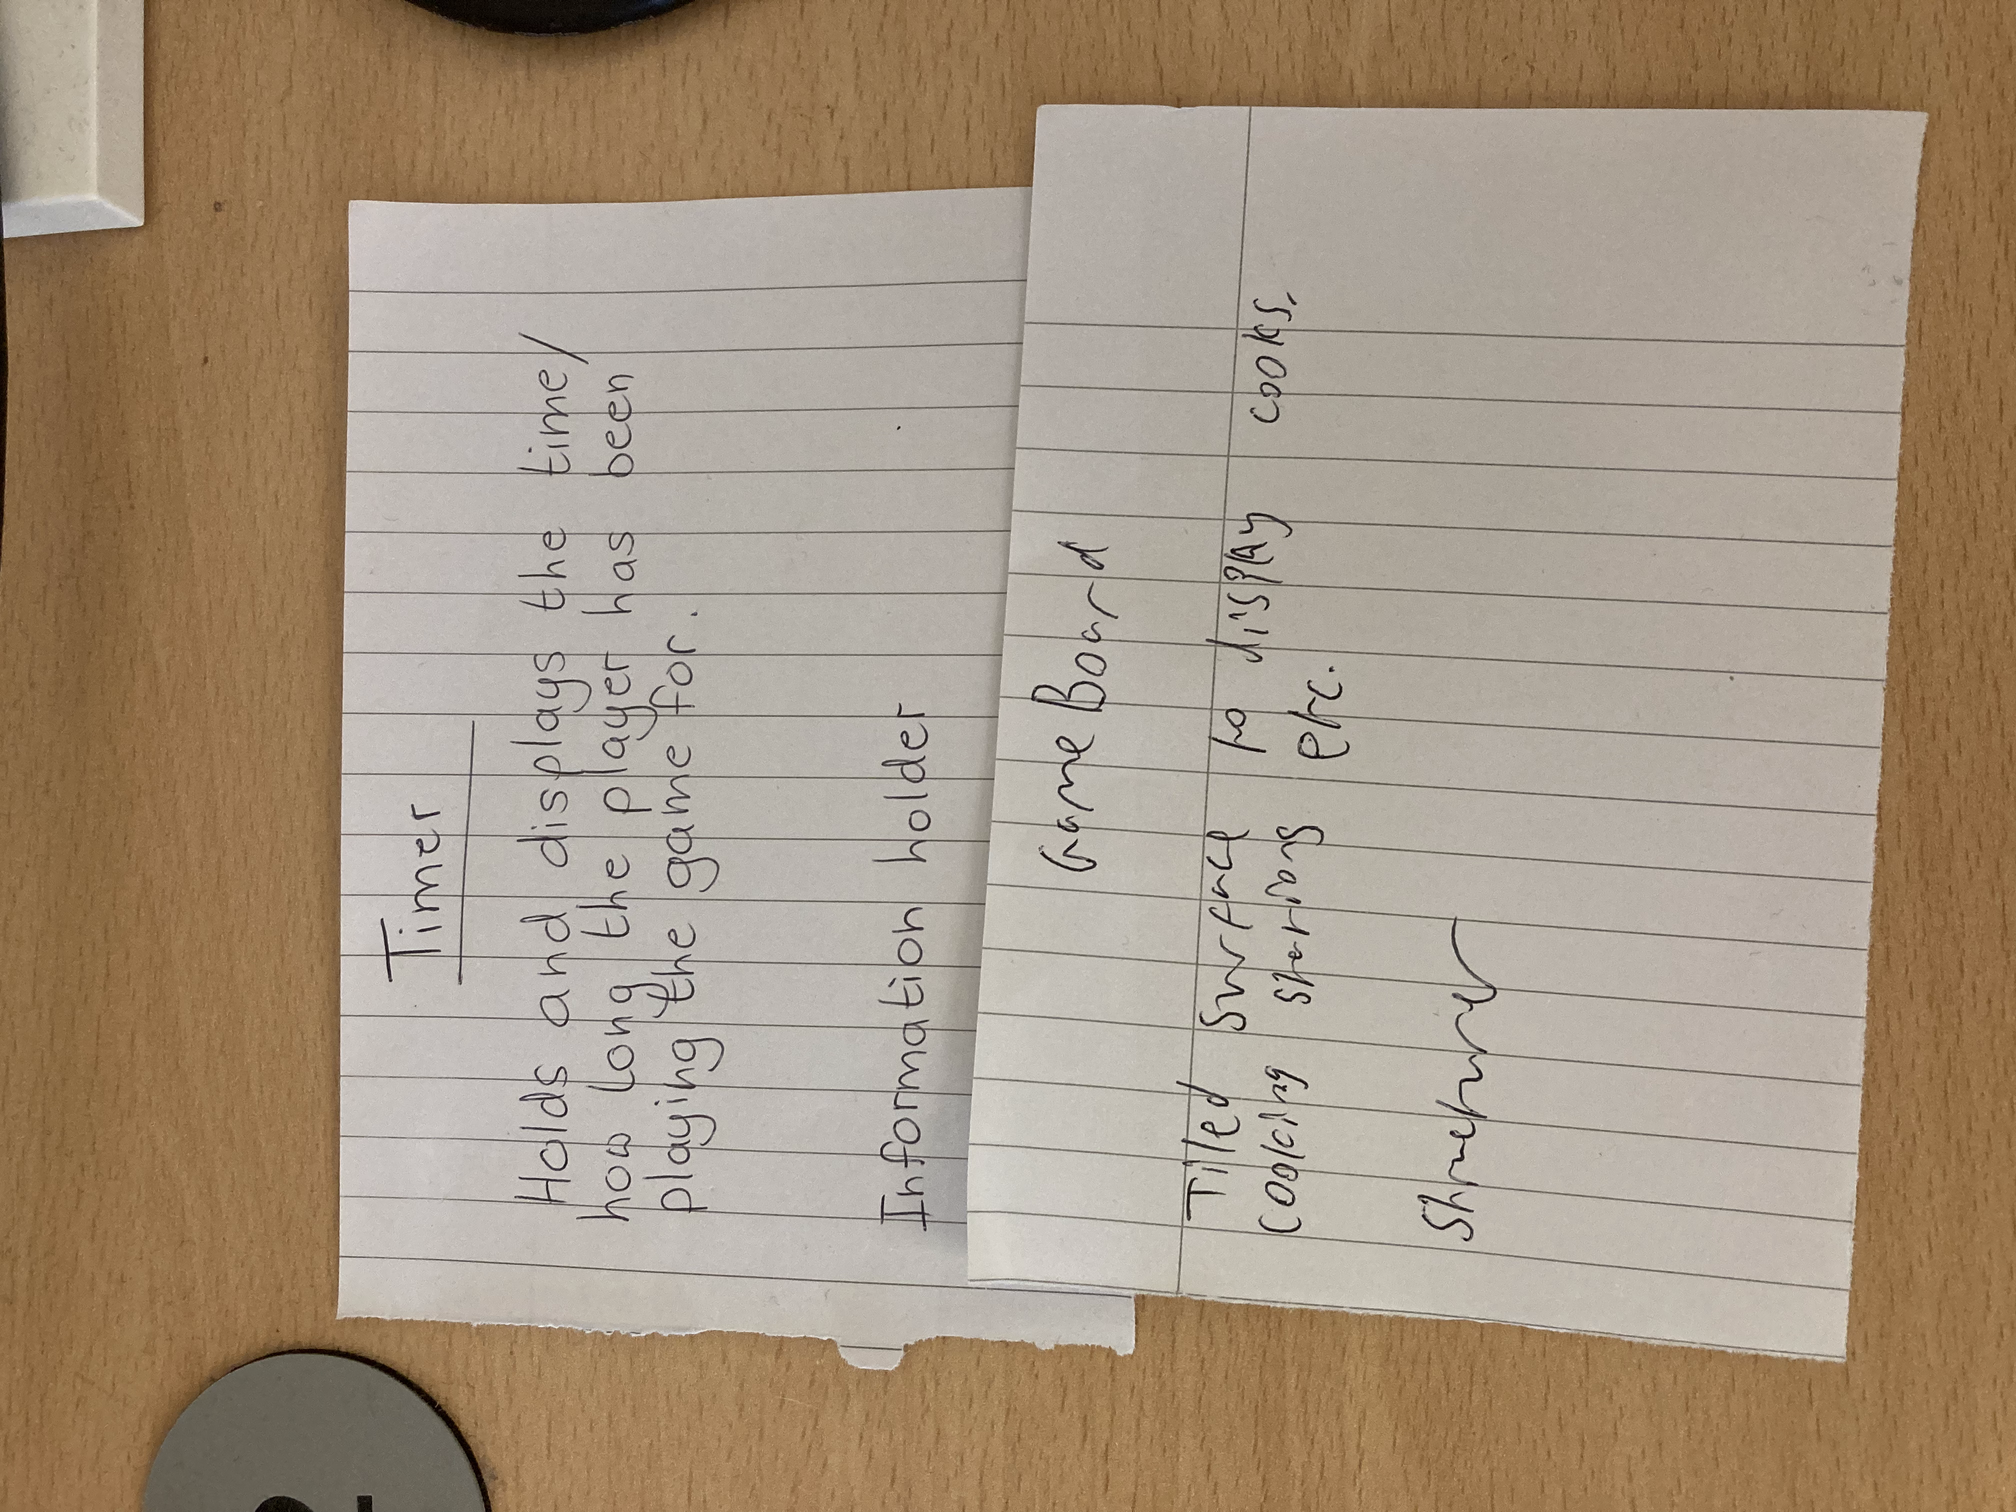 Timer
Holds and displays the time/
how long the player has been
playing the game for.
Information holder
Game Board
Tiled surface to display cooks,
cooking stations etc.